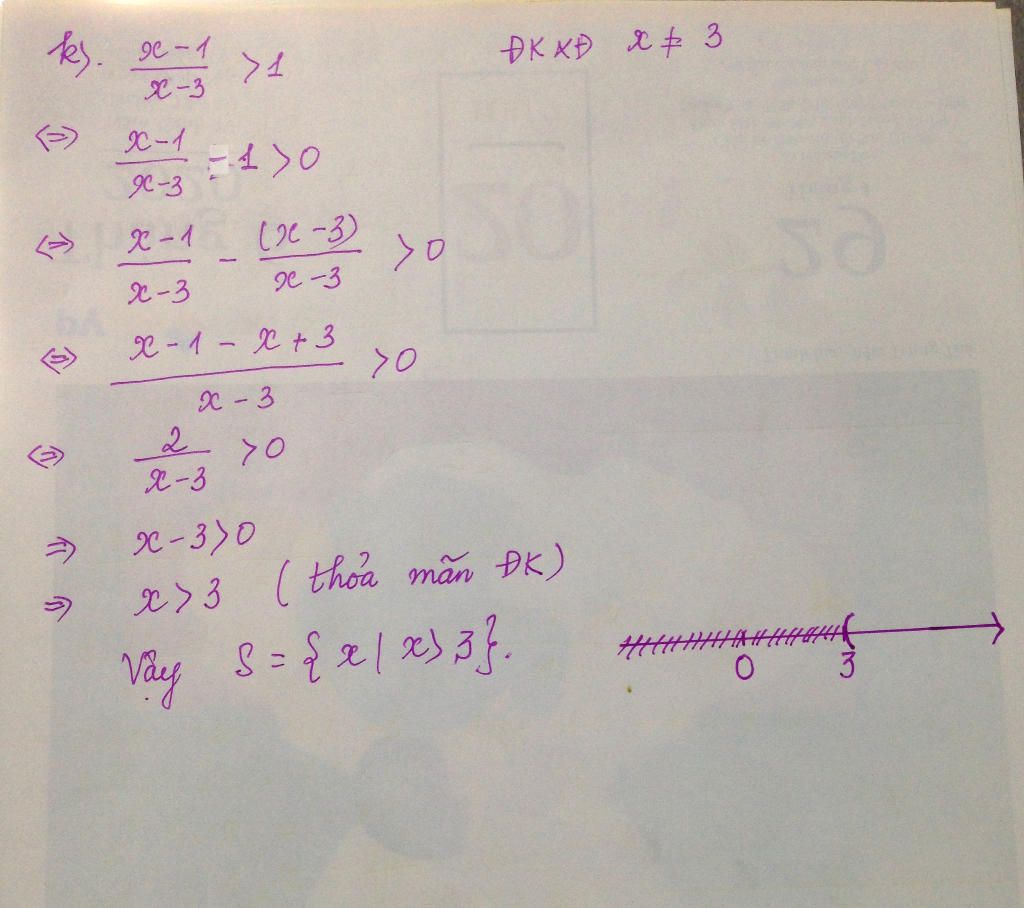 k). (x-1)/(x-3) > 1 ĐKXĐ x ≠ 3
⇔ (x-1)/(x-3) - 1 > 0
⇔ (x-1)/(x-3) - (x-3)/(x-3) > 0
⇔ (x-1-x+3)/(x-3) > 0
⇔ 2/(x-3) > 0
⇒ x-3>0
⇒ x>3 (thỏa mãn ĐK)
Vậy S = {x | x>3}.
0 3